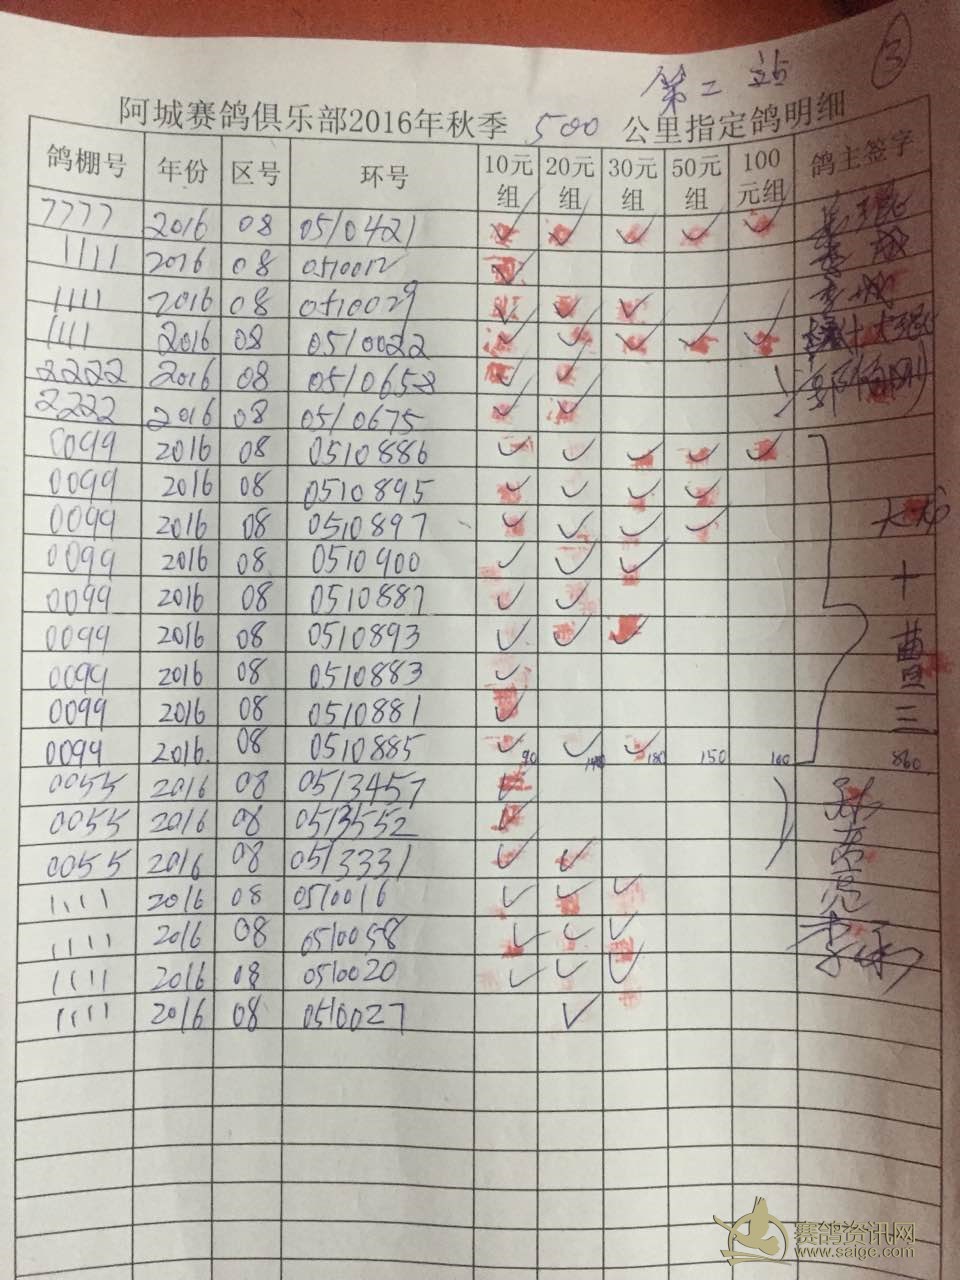 ③
第二站
阿城赛鸽俱乐部2016年秋季 500 公里指定鸽明细
鸽棚号 年份 区号 环号 10元组 20元组 30元组 50元组 100元组 鸽主签字
7777 2016 08 0510421 ✓ ✓ ✓ ✓ ✓
1111 2016 08 0510012 ✓
1111 2016 08 0510029 ✓ ✓ ✓
1111 2016 08 0510022 ✓ ✓ ✓ ✓ ✓
2222 2016 08 0510658 ✓ ✓
2222 2016 08 0510675 ✓ ✓
0099 2016 08 0510886 ✓ ✓ ✓ ✓ ✓
0099 2016 08 0510895 ✓ ✓ ✓ ✓
0099 2016 08 0510897 ✓ ✓ ✓ ✓
0099 2016 08 0510900 ✓ ✓ ✓
0099 2016 08 0510887 ✓ ✓ 十
0099 2016 08 0510893 ✓ ✓ ✓ 曹
0099 2016 08 0510883 ✓
0099 2016 08 0510881 ✓ 三
0099 2016 08 0510885 ✓ 90 ✓ 140 ✓ 180 150 100 860
0055 2016 08 0513457 ✓
0055 2016 08 0513552 ✓
0055 2016 08 0513331 ✓ ✓
1111 2016 08 0510016 ✓ ✓ ✓
1111 2016 08 0510058 ✓ ✓ ✓
1111 2016 08 0510020 ✓ ✓ ✓
1111 2016 08 0510027 ✓
赛鸽资讯网
www.saigc.com